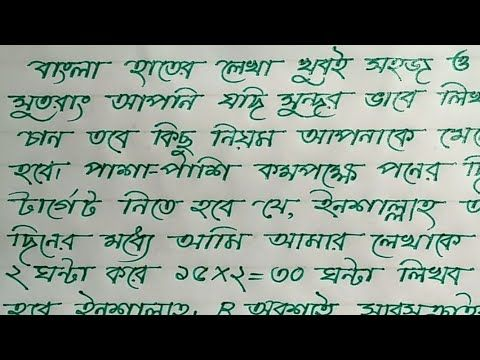 বাংলা হাতের লেখা খুবই সহজ ও
সুতরাং আপনি যদি সুন্দর ভাবে লিখ
চান তবে কিছু নিয়ম আপনাকে মে
হবে। পাশা-পাশি কমপক্ষে পনের দি
টার্গেট নিতে হবে যে, ইনশাল্লাহ
দিনের মধ্যে আমি আমার লেখাকে
২ ঘন্টা করে ১৫×২=৩০ ঘন্টা লিখব
হবে ইনশাল্লাহ।